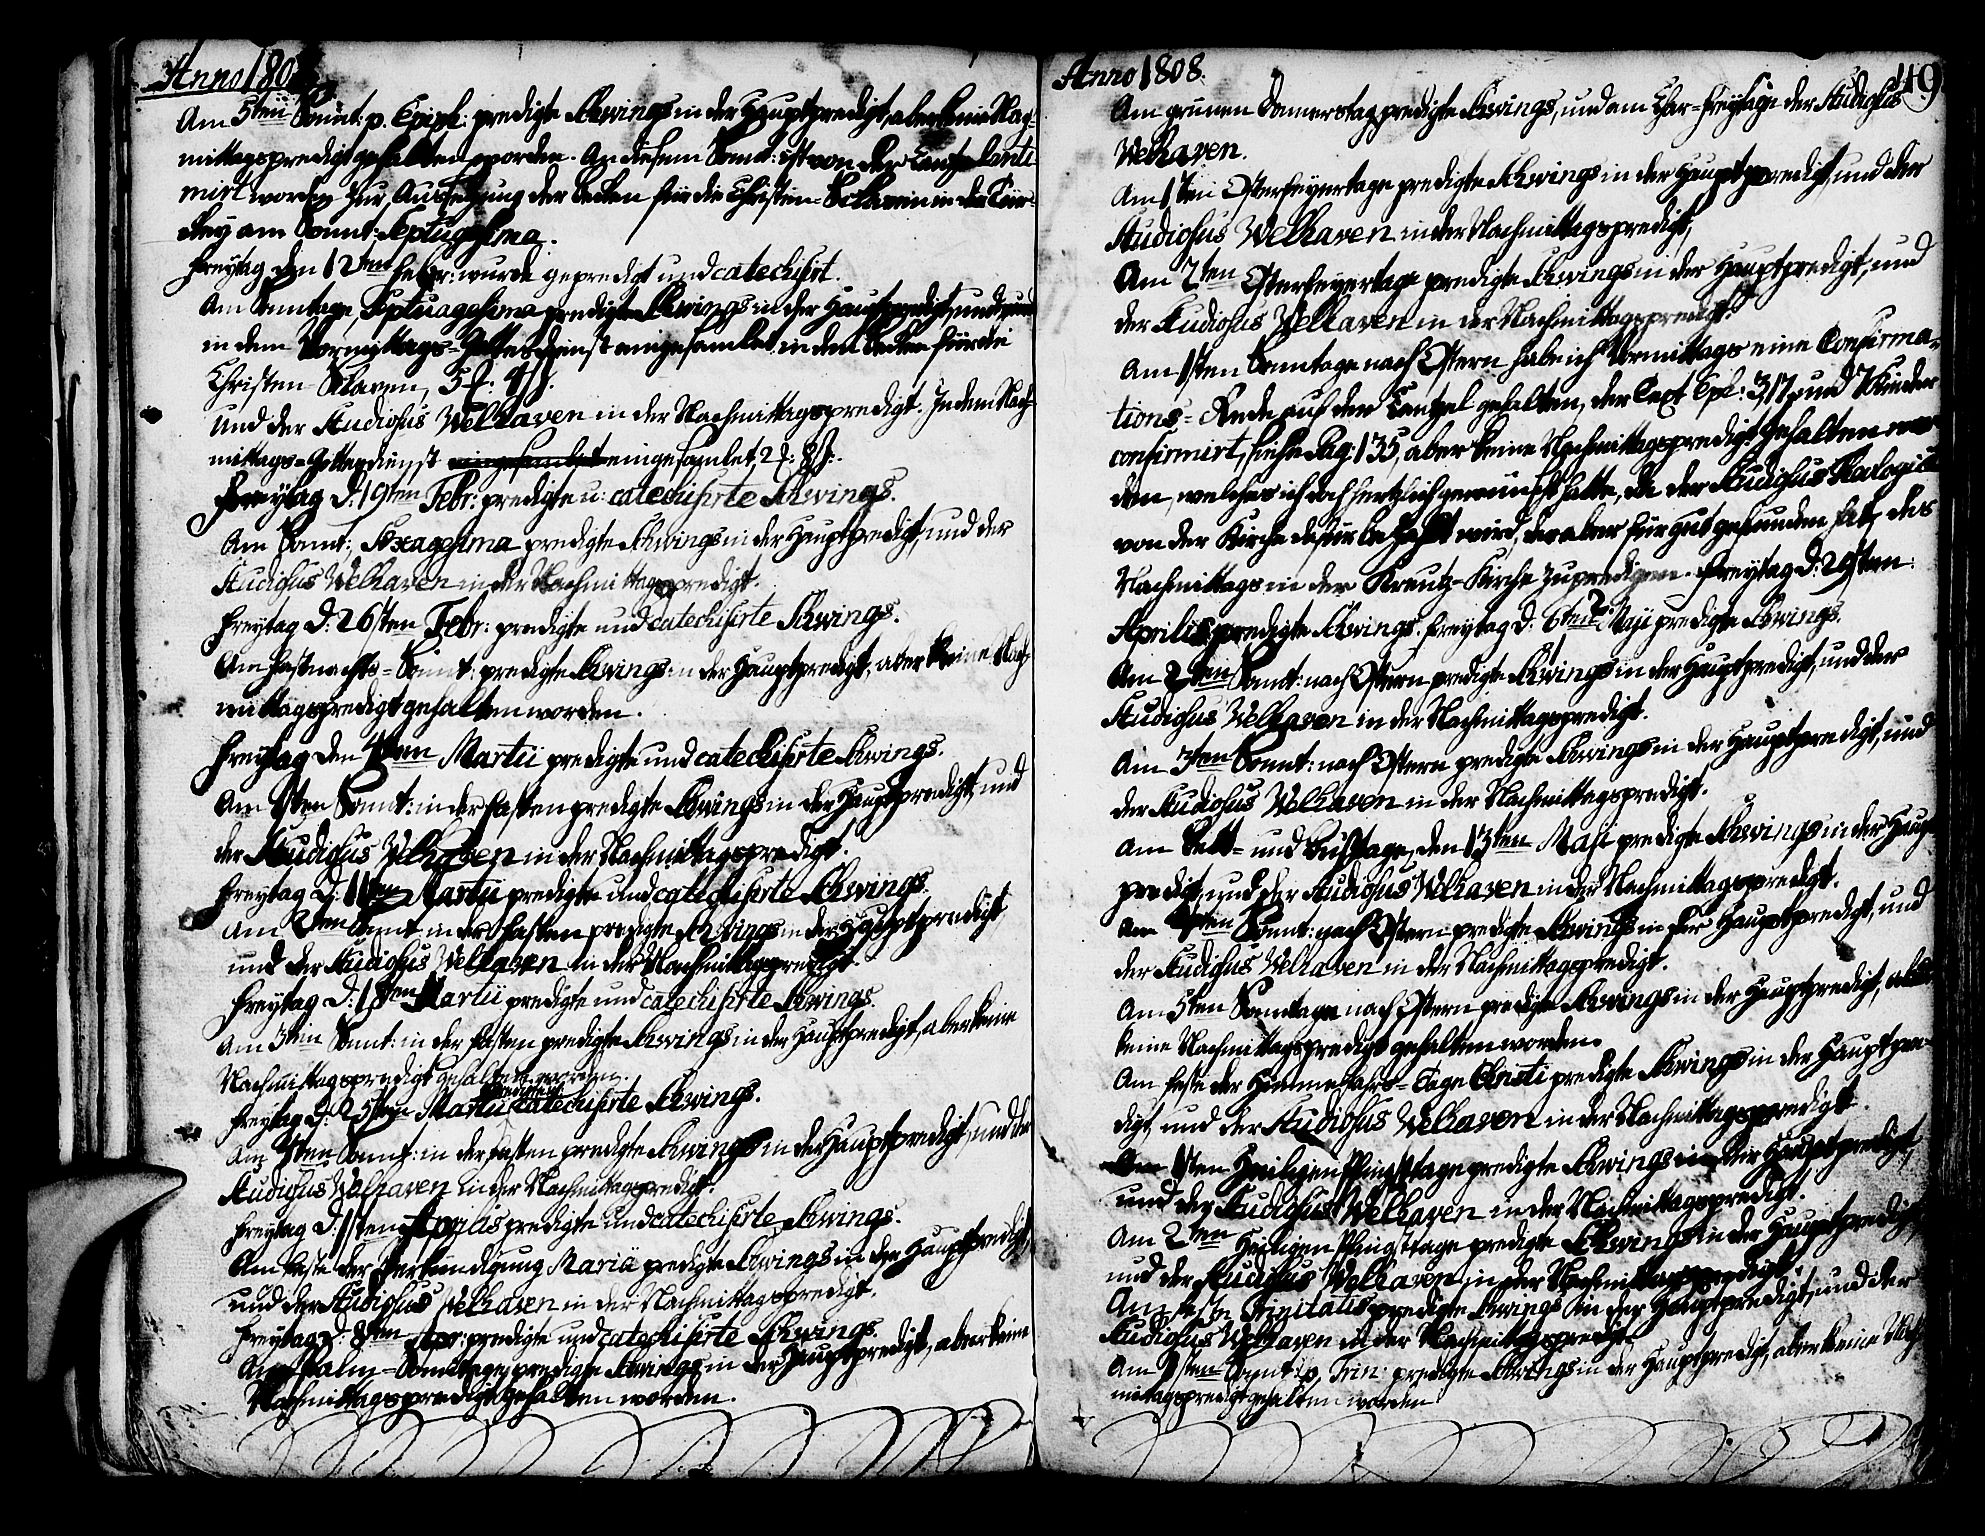 Anno 1808
Am 5ten Sonnt: p. Epiph: predigte Schwings in der Hauptpredigt, aber keine Nach-
mittagspredigt gehalten worden. An diesem Sonnt: ist von der Cantzel anti-
mirt worden zur Aussetzung der Becken für die Christen-Sclaven in der Tür-
ckey am Sonnt: Septuagesima.
Freytag den 12ten Febr: wurde gepredigt und catechisirt.
Am Sonntage, Septuagesima predigte Schwings in der Hauptpredigt, und
in dem Vormittags-Gottesdienst eingesamlet in dem Becken für die
Christen Sclaven, 5 f. 4 ß.
und der Studiosus Welhaven in der Nachmittagspredigt. In dem Nach-
mittags-Gottesdienst eingesamlet eingesamlet, 2 f: 8 ß:
Freytag d: 19ten Febr: predigte u: catechisirte Schwings.
Am Sonnt:, Sexagesima predigte Schwings in der Hauptpredigt, und der
Studiosus Welhaven in der Nachmittagspredigt.
Freytag d: 26sten Febr: predigte und catechisirte Schwings.
Am Fastnachts-Sonnt: predigte Schwings in der Hauptpredigt, aber keine Nach-
mittagspredigt gehalten worden.
Freytag den 4ten Martii predigte und catechisirte Schwings.
Am 1sten Sonnt: in der Fasten predigte Schwings in der Hauptpredigt, und
der Studiosus Welhaven in der Nachmittagspredigt.
Freytag d: 11ten Martii predigte und catechisirte Schwings.
Am 2ten Sonnt: in der Fasten predigte Schwings in der Hauptpredigt,
und der Studiosus Welhaven in der Nachmittagspredigt.
Freytag d: 18ten Martii predigte und catechisirte Schwings.
Am 3ten Sonnt: in der Fasten predigte Schwings in der Hauptpredigt, aber keine
Nachmittagspredigt gehalten worden.
Freytag d: 25sten Martii catechisirte Schwings.
Am 4ten Sonnt: in der Fasten predigte Schwings in der Hauptpredigt, und der
Studiosus Welhaven in der Nachmittagspredigt.
Freytag d: 1sten Aprilis predigte und catechisirte Schwings.
Am Feste der Verkündigung Mariä predigte Schwings in der Hauptpredigt,
und der Studiosus Welhaven in der Nachmittagspredigt.
Freytag d: 8ten Apr: predigte und catechisirte Schwings.
Am Palm-Sonntage, predigte Schwings in der Hauptpredigt, aber keine
Nachmittagspredigt gehalten worden.
Anno 1808.
49
Am grünen Donnerstag predigte Schwings, und am Char-Freytage der Studiosus
Welhaven.
Am 1sten Osterfeyertage predigte Schwings in der Hauptpredigt, und der
Studiosus Welhaven in der Nachmittagspredigt,
Am 2ten Osterfeyertage predigte Schwings in der Hauptpredigt, und
der Studiosus Welhaven in der Nachmittagspredigt.
Am 1sten Sonntage nach Ostern habe ich Vormittags eine Confirma-
tions-Rede auf der Cantzel gehalten, der Text Eph: 3, 17, und 7 Kinder
confirmirt, siehe Pag: 135, aber keine Nachmittagspredigt gehalten wor-
den, welches ich doch hertzlich gewünscht hatte, da der Studiosus Theologiae
von der Kirche dafür bezahlt wird, der aber für gut gefunden hat, des
Nachmittags in der Kreutz-Kirche zu predigen. Freytag d: 29sten
Aprilis predigte Schwings. Freytag d: 6ten Maji predigte Schwings.
Am 2ten Sonnt: nach Ostern predigte Schwings in der Hauptpredigt, und der
Studiosus Welhaven in der Nachmittagspredigt.
Am 3ten Sonnt: nach Ostern predigte Schwings in der Hauptpredigt, und
der Studiosus Welhaven in der Nachmittagspredigt.
Am Bett- und Bußtage, den 13ten Maji predigte Schwings in der Haupt-
predigt, und der Studiosus Welhaven in der Nachmittagspredigt.
Am 4ten Sonnt: nach Ostern predigte Schwings in der Hauptpredigt, und
der Studiosus Welhaven in der Nachmittagspredigt.
Am 5ten Sonntage nach Ostern predigte Schwings in der Hauptpredigt, aber
keine Nachmittagspredigt gehalten worden.
Am Feste der Himmelfahrts-Tage Christi predigte Schwings in der Hauptpre-
digt, und der Studiosus Welhaven in der Nachmittagspredigt.
Am 1sten Heiligen Pfingsttage predigte Schwings in der Hauptpredigt,
und der Studiosus Welhaven in der Nachmittagspredigt.
Am 2ten Heiligen Pfingsttage predigte Schwings in der Hauptpredigt,
und der Studiosus Welhaven in der Nachmittagspredigt.
Am Feste Trinitatis predigte Schwings in der Hauptpredigt, und der
Studiosus Welhaven in der Nachmittagspredigt.
Am 1sten Sonnt: p. Trin: predigte Schwings in der Hauptpredigt, aber keine Nach-
mittagspredigt gehalten worden